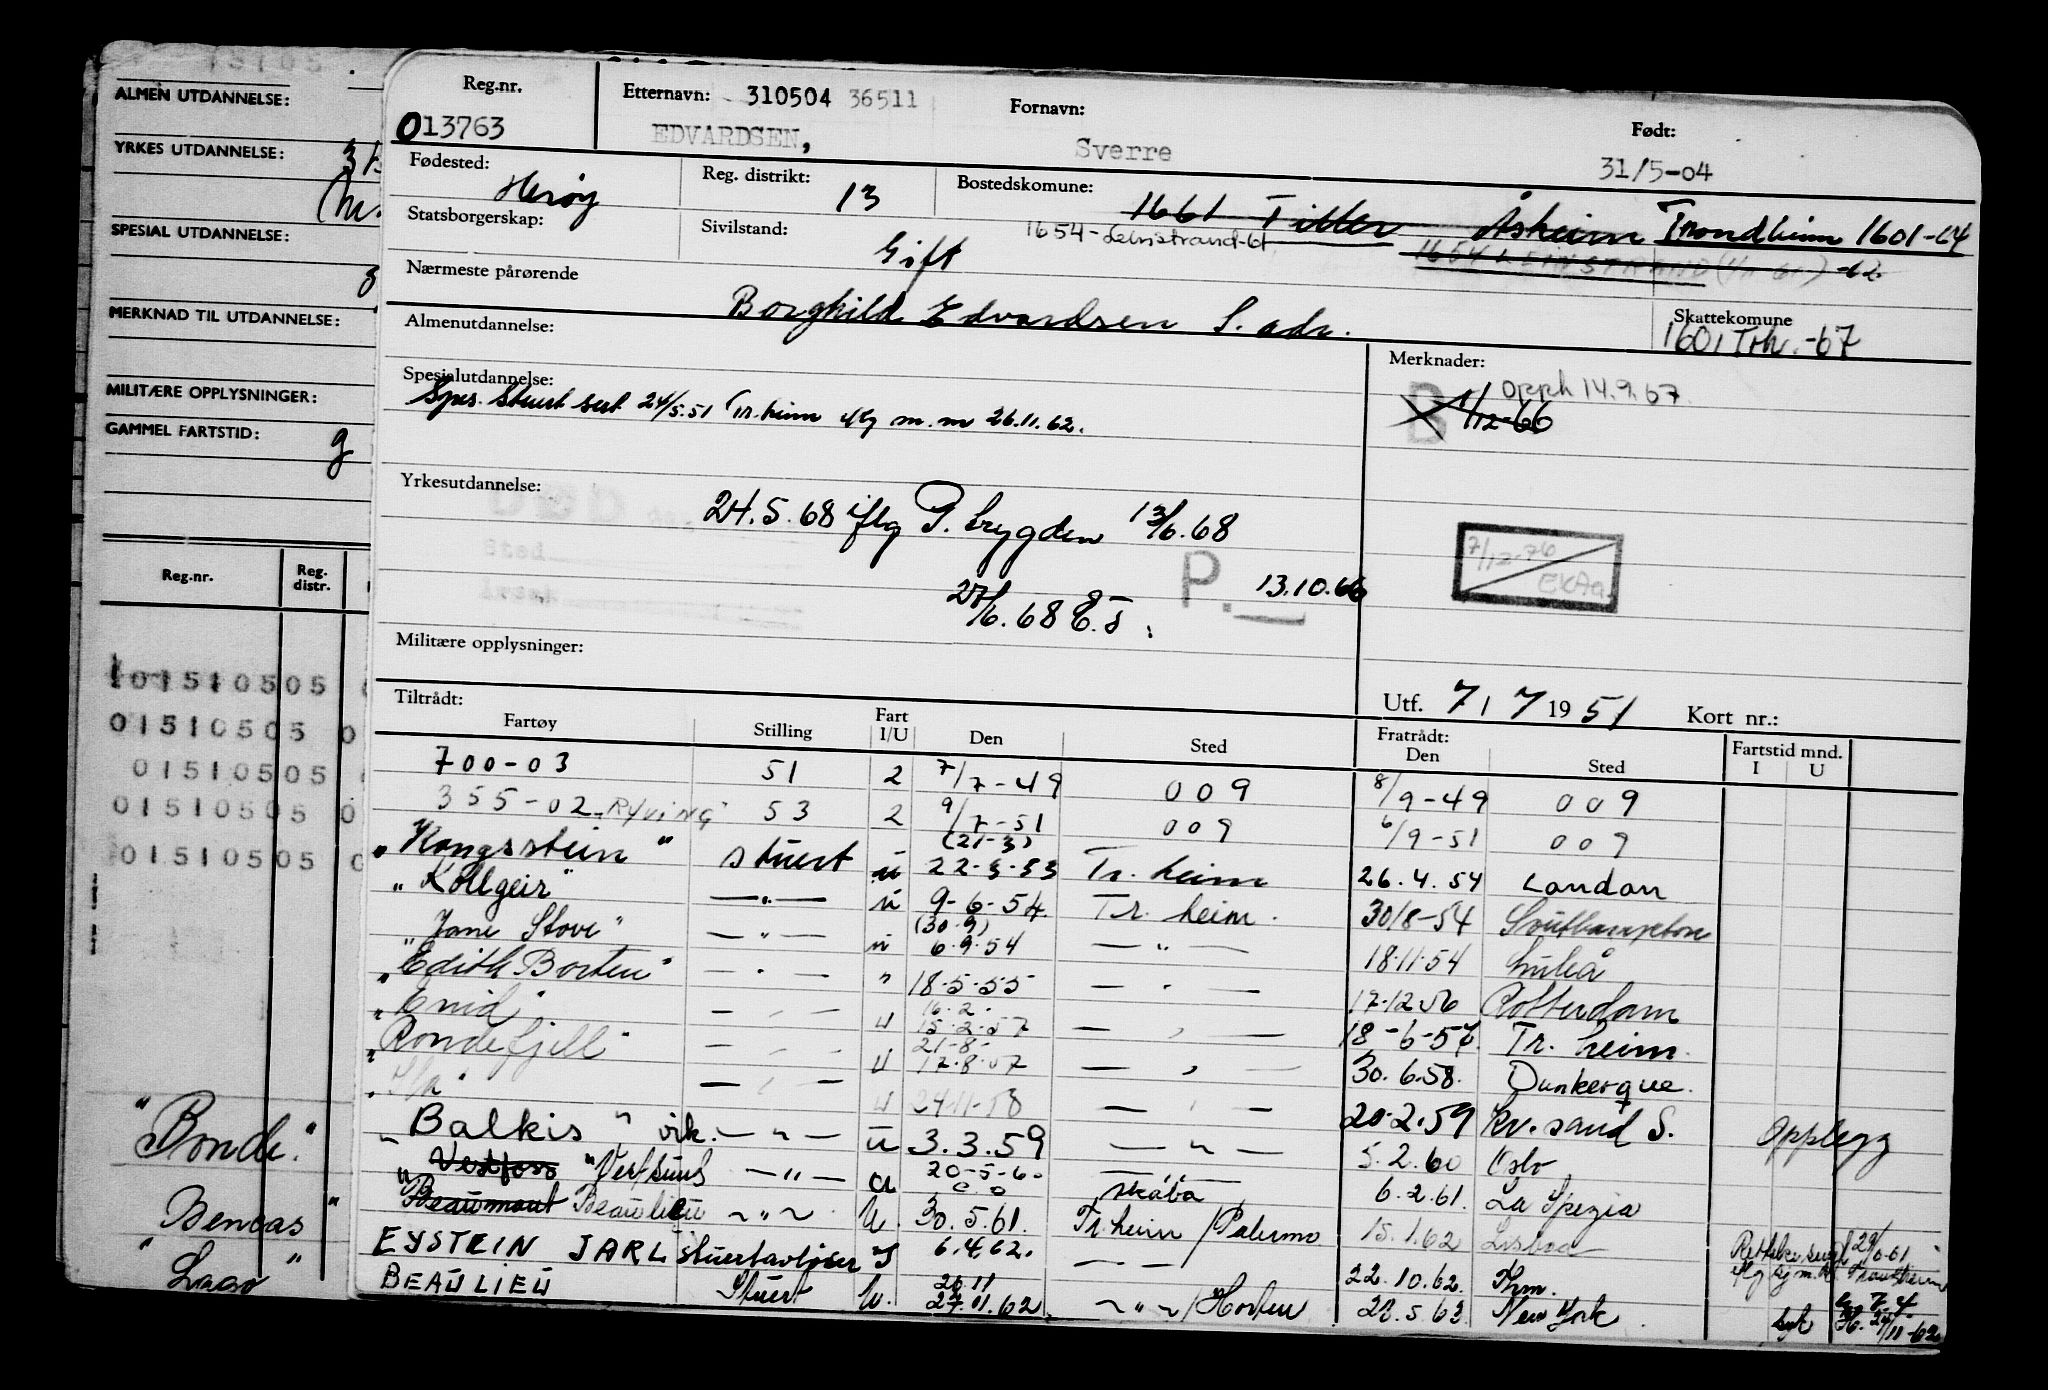 ALMEN UTDANNELSE:
YRKES UTDANNELSE:
SPESIAL UTDANNELSE:
MERKNAD TIL UTDANNELSE:
MILITÆRE OPPLYSNINGER:
GAMMEL FARTSTID:
Reg.nr. Reg. distr.
01510505
01510505
01510505
01510505
01510505
"Bonde"
Bencas "
" Lago "
Reg.nr. Etternavn: 310504 36511 Fornavn: Født:
013763 EDVARDSEN, Sverre 31/5-04
Fødested: Herøy Reg. distrikt: 13 Bostedskomune: 1661 Tiller Åsheim Trondheim 1601-64
Statsborgerskap: Sivilstand: Gift 1654-Leinstrand-61 1654 LEINSTRAND -62
Nærmeste pårørende Borghild Edvardsen S. adr. Skattekomune
1601 Trh.-67
Almenutdannelse: Merknader:
Opph 14.9.67
Spesialutdannelse: B 1/12-66
Spes. Stuert sert 24/5.51 Tr.heim m.m 26.11.62.
Yrkesutdannelse:
24.5.68 iflg P. trygden 13/6.68
7/12-76
P. 13.10.66
27/6.68 E.J.
Militære opplysninger:
Utf. 7/7 1951 Kort nr.:
Tiltrådt: Fratrådt: Fartstid mnd.
Fartøy Stilling Fart I/U Den Sted Den Sted I U
700-03 51 2 7/7-49 009 8/9-49 009
355-02 RYVING 53 2 9/7-51 009 6/9-51 009
"Kongsstein" stuert u (21-3) 22-3-53 Tr. heim 26.4.54 London
"Kollgeir" —"— u 9-6-54 Tr. heim. 30/8-54 Southampton
"Jane Stove" —"— u (30.9) 6.9.54 —"— 18.11.54 Luleå
"Edith Borten" —"— " 18.5.55 —"— 17.12.56 Rotterdam
"Enid" —"— u 16.2. 15.2.57 —"— 18-6-57 Tr. heim.
"Rondefjell" —"— u 21-8- 17.8.57 —"— 30.6.58. Dunkerque.
—"— u 24.11-58 —"— 20.2.59 Kr. sand S. Opplegg
"Balkis" vik. —"— u 3.3.59 —"— 5.2.60 Oslo
"Vestfoss "Vestsund —"— u 20-5-60 6.2.61. La Spezia
"Beaumont Beaulieu ~"~ U. 30.5.61. Tr.heim/Palermo 15.1.62 Lisboa
EYSTEIN JARL stuertavløser 6.4.62. —"— 22.10.62. Thm.
BEAULIEU Stuert U. 26.11 27.11.62 ~"~/Horten 28.5.63. New York. syk